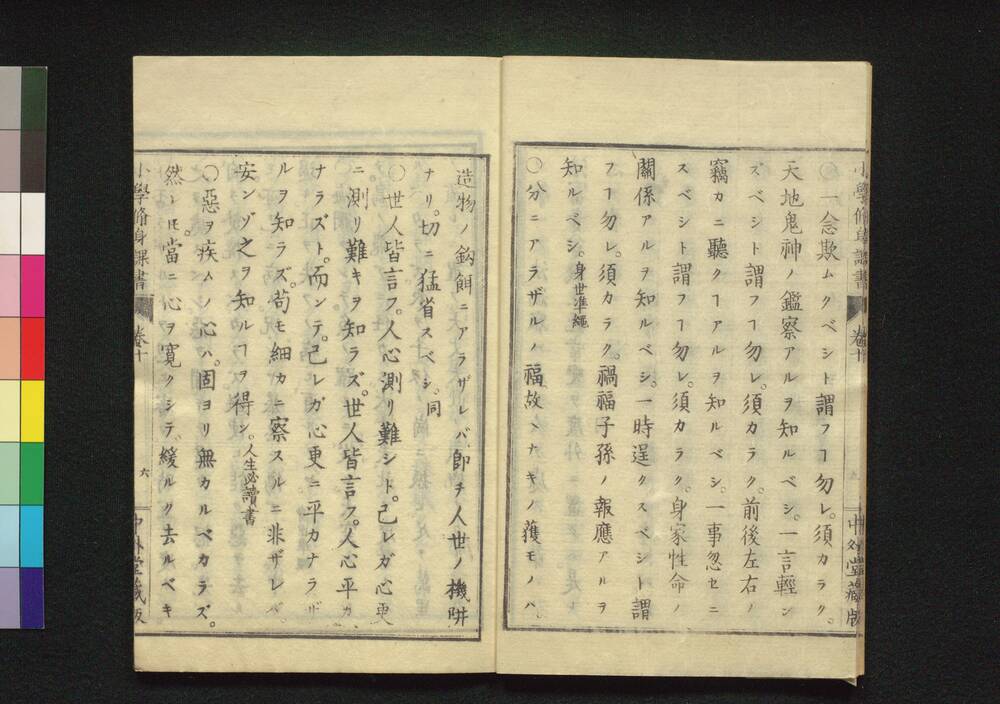 小學修身課書
卷十
中外堂藏版
〇一念欺ムクベシト謂フヿ勿レ。須カラク。
天地鬼神ノ鑑察アルヲ知ルベシ。一言輕ン
ズベシト謂フヿ勿レ。須カラク。前後左右ノ
竊カニ聽クヿアルヲ知ルベシ。一事忽セニ
スベシト謂フヿ勿レ。須カラク。身家性命ノ
關係アルヲ知ルベシ。一時逞クスベシト謂
フヿ勿レ。須カラク。禍福子孫ノ報應アルヲ
知ルベシ。身世準繩
〇分ニアラザルノ福故ヽナキノ獲モノハ
造物ノ釣餌ニアラザレバ、即チ人世ノ機阱
ナリ。切ニ猛省スベシ。同
〇世人皆言フ。人心測リ難シト。己レガ心更
ニ測リ難キヲ知ラズ。世人皆言フ。人心平カ
ナラズト。而シテ。己レガ心更ニ平カナラザ
ルヲ知ラズ。苟モ細カニ察スルニ非ザレバ
安ンゾ之ヲ知ルヿヲ得ン。人生必讀書
〇惡ヲ疾ムノ心ハ。固ヨリ無カルベカラズ。
然レ𪜈。當ニ心ヲ寛クシテ、緩ルク去ルベキ
小學修身課書
卷十
六
中外堂藏版